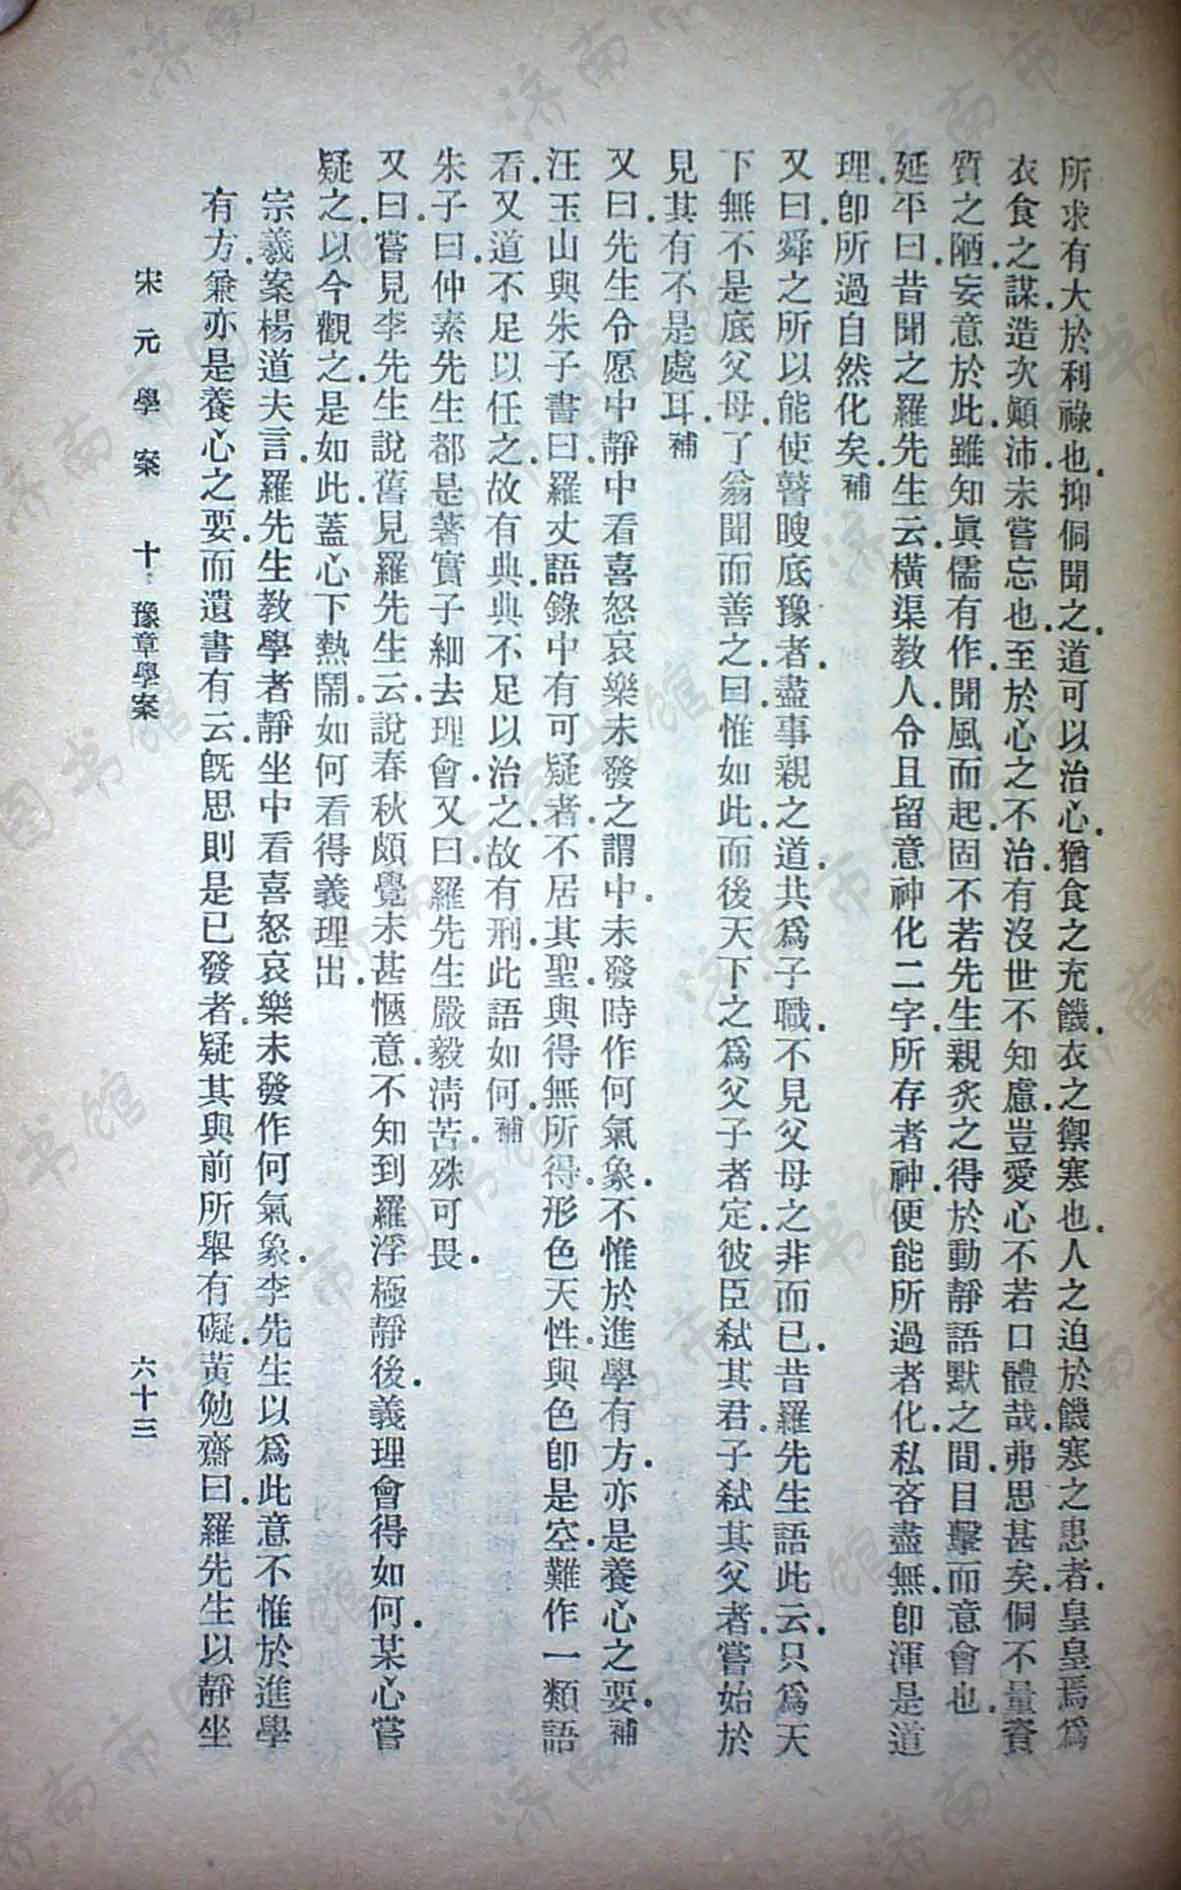 所求有大於利祿也抑侗聞之道可以治心猶食之充饑衣之禦寒也人之迫於饑寒之患者皇皇焉爲
衣食之謀造次顚沛未嘗忘也至於心之不治有沒世不知慮豈愛心不若口體哉弗思甚矣侗不量資
質之陋妄意於此雖知眞儒有作聞風而起固不若先生親炙之得於動靜語默之間目擊而意會也
延平曰昔聞之羅先生云橫渠敎人令且留意神化二字所存者神便能所過者化私吝盡無卽渾是道
理卽所過自然化矣補
又曰舜之所以能使瞽瞍底豫者盡事親之道共爲子職不見父母之非而已昔羅先生語此云只爲天
下無不是底父母了翁聞而善之曰惟如此而後天下之爲父子者定彼臣弒其君子弒其父者嘗始於
見其有不是處耳補
又曰先生令愿中靜中看喜怒哀樂未發之謂中未發時作何氣象不惟於進學有方亦是養心之要補
汪玉山與朱子書曰羅丈語錄中有可疑者不居其聖與得無所得形色天性與色卽是空難作一類語
看又道不足以任之故有典典不足以治之故有刑此語如何補
朱子曰仲素先生都是著實子細去理會又曰羅先生嚴毅淸苦殊可畏
又曰嘗見李先生說舊見羅先生云說春秋頗覺未甚愜意不知到羅浮極靜後義理會得如何某心嘗
疑之以今觀之是如此蓋心下熱鬧如何看得義理出
宗羲案楊道夫言羅先生敎學者靜坐中看喜怒哀樂未發作何氣象李先生以爲此意不惟於進學
有方兼亦是養心之要而遺書有云旣思則是已發者疑其與前所舉有礙黃勉齋曰羅先生以靜坐
宋元學案 十 豫章學案 六十三
济南市图书馆